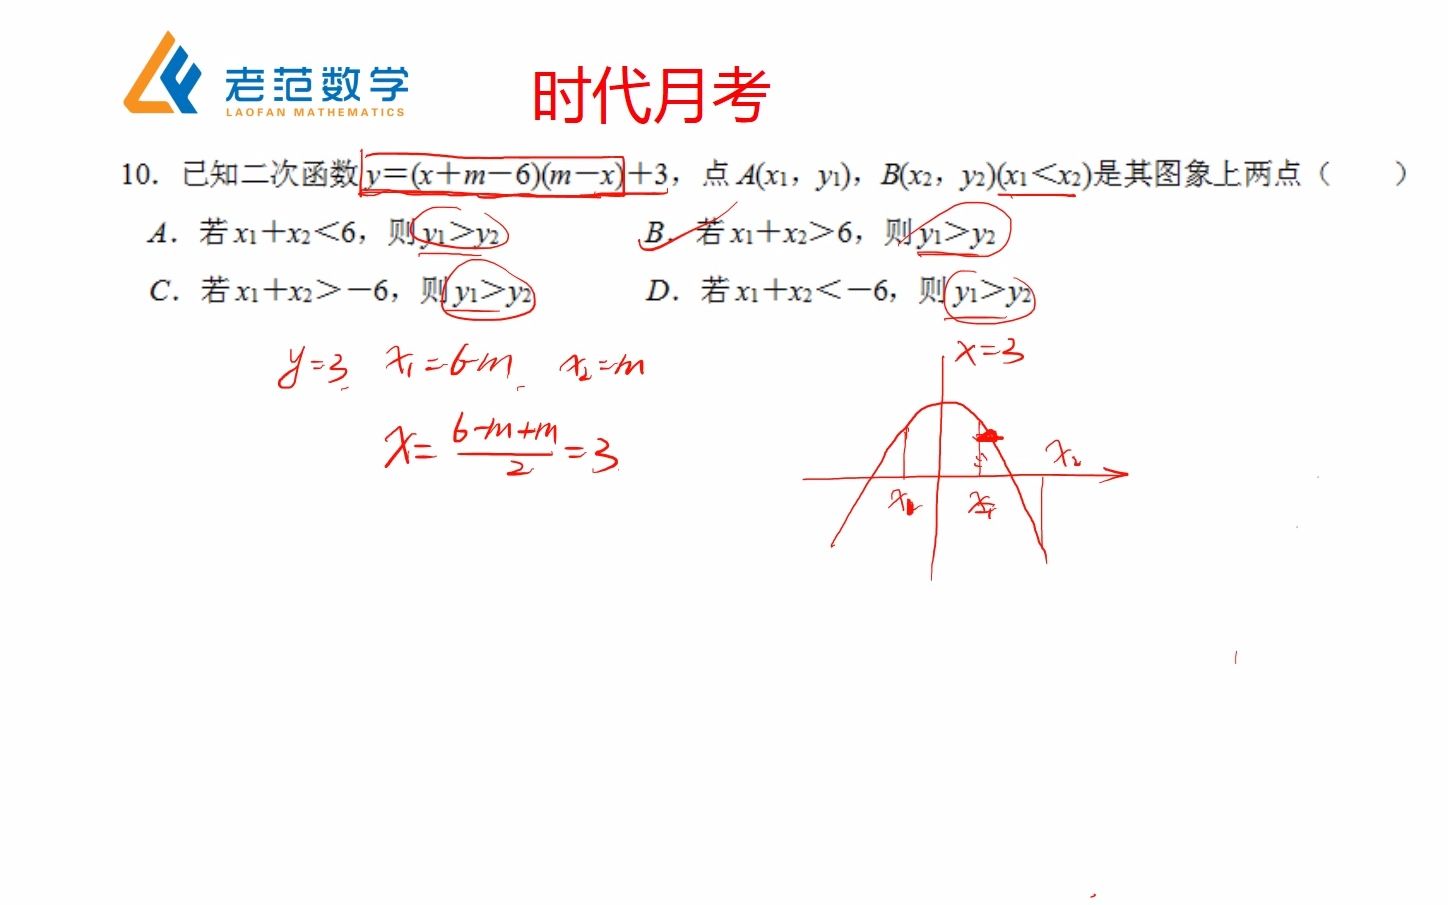 老范数学
LAOFAN MATHEMATICS
时代月考
10. 已知二次函数y=(x+m-6)(m-x)+3, 点A(x1, y1), B(x2, y2)(x1<x2)是其图象上两点( )
A. 若x1+x2<6, 则y1>y2 B. 若x1+x2>6, 则y1>y2
C. 若x1+x2>-6, 则y1>y2 D. 若x1+x2<-6, 则y1>y2
y=3 x1=6-m x2=m
x=3
x=(6-m+m)/2=3
x2